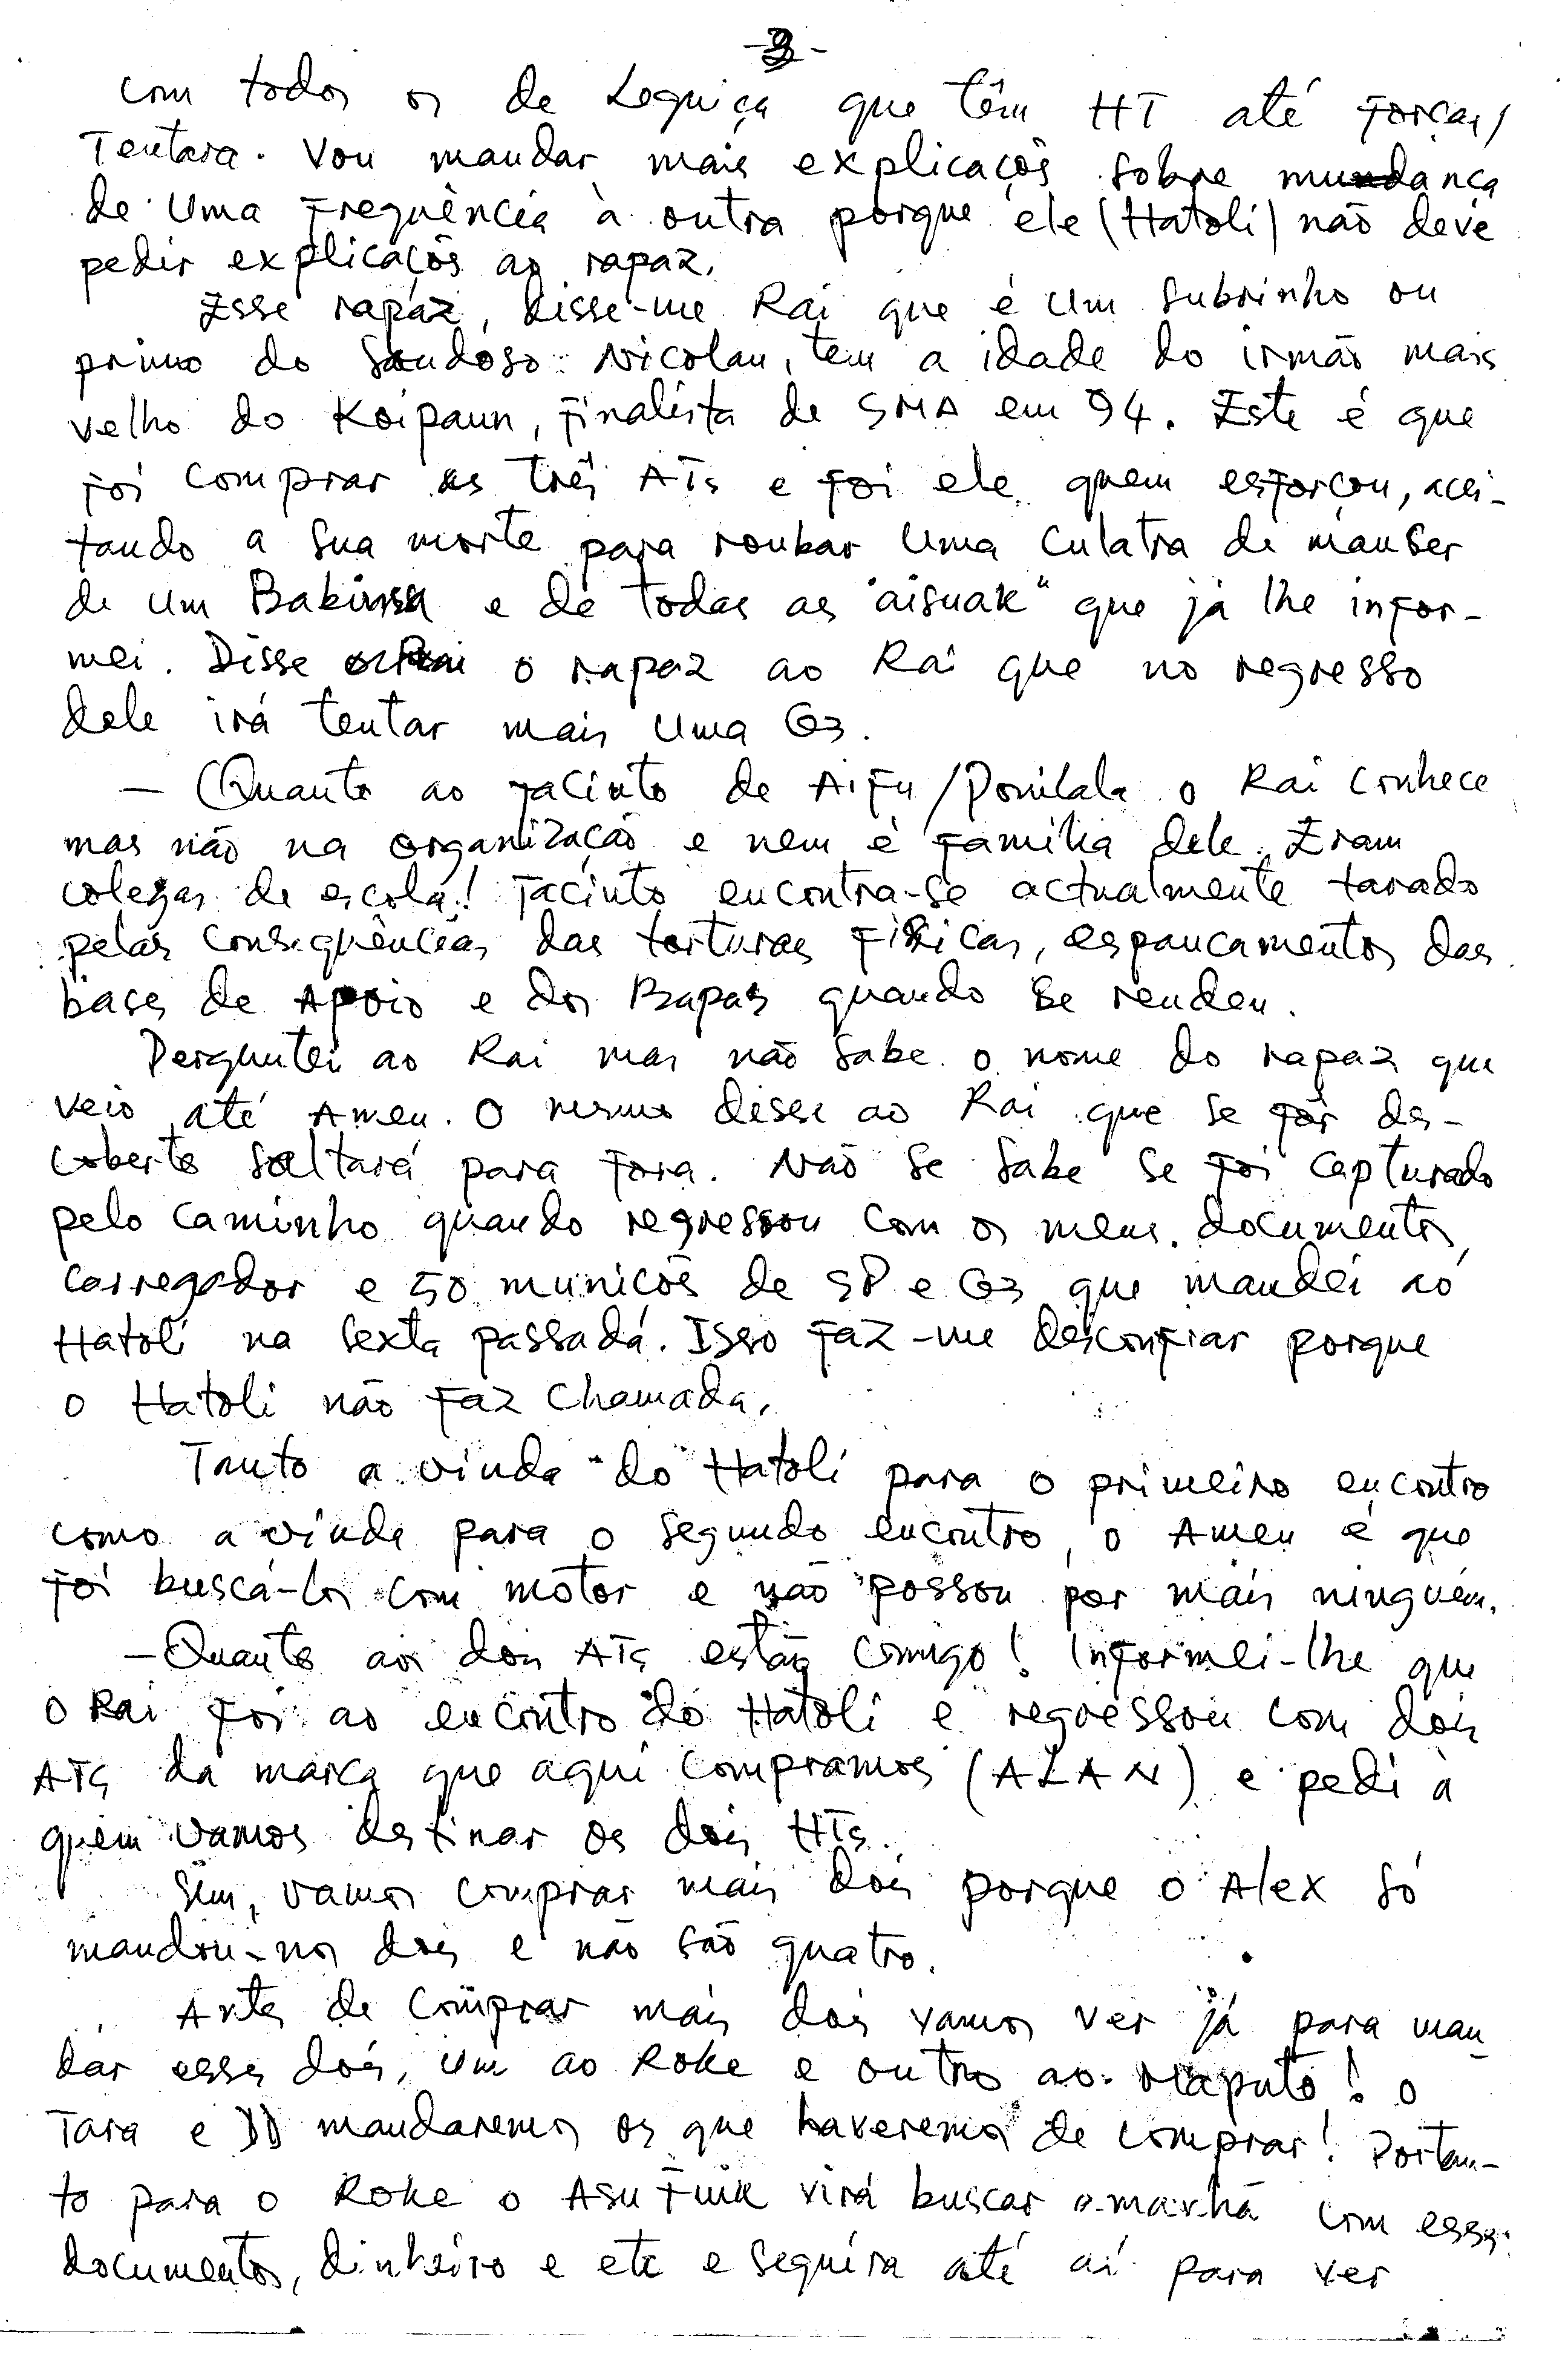 -3-
com todos os de Loquiça que têm HT até forçar/
Tentara. Vou mandar mais explicaçõs sobre mudança
de uma frequência à outra porque ele (Hatoli) não deve
pedir explicaçõs ao rapaz.
Esse rapaz, disse-me Rai que é um subrinho ou
primo do saudoso Nicolau, tem a idade do irmão mais
velho do Koipaun, finalista de SMA em 94. Este é que
foi comprar as três ATs e foi ele quem esforçou, acei-
tando a sua morte para roubar uma culatra de mauser
de um Babinsa e de todas as "aisuak" que já lhe infor-
mei. Disse o rapaz ao Rai que no regresso
dele irá tentar mais uma G3.
— Quanto ao Jacinto de Aifu/Ponilala o Rai conhece
mas não na organização e nem é família dele. Eram
colegas de escola! Jacinto encontra-se actualmente tarado
pelas consequências das torturas fisicas, espancamentos das
bases de Apoio e dos Bapas quando se rendeu.
Perguntei ao Rai mas não sabe o nome do rapaz que
veio até Ameu. O mesmo disse ao Rai que se fôr des-
coberto saltará para fora. Não se sabe se foi capturado
pelo caminho quando regressou com os meus documentos,
carregador e 50 municõs de SP e G3 que mandei ao
Hatoli na sexta passada. Isso faz-me desconfiar porque
o Hatoli não faz chamada.
Tanto a vinda do Hatoli para o primeiro encontro
como a vinda para o segundo encontro, o Ameu é que
foi buscá-los com motor e não passou por mais ninguém.
— Quanto aos dois ATs estão comigo! Informei-lhe que
o Rai foi ao encontro do Hatoli e regressou com dois
ATs da marca que aqui compramos (ALAN) e pedi a
quem vamos destinar os dois HTs.
Sim, vamos comprar mais dois porque o Alex só
mandou-nos dois e não são quatro.
Antes de comprar mais dois vamos ver já para man
dar esses dois, um ao Roke e outro ao Maputo! O
Tara e DD mandaremos os que haveremos de comprar! Portan-
to para o Roke o Asu Fuik virá buscar amanhã com esses
documentos, dinheiro e etc e seguira até aí para ver